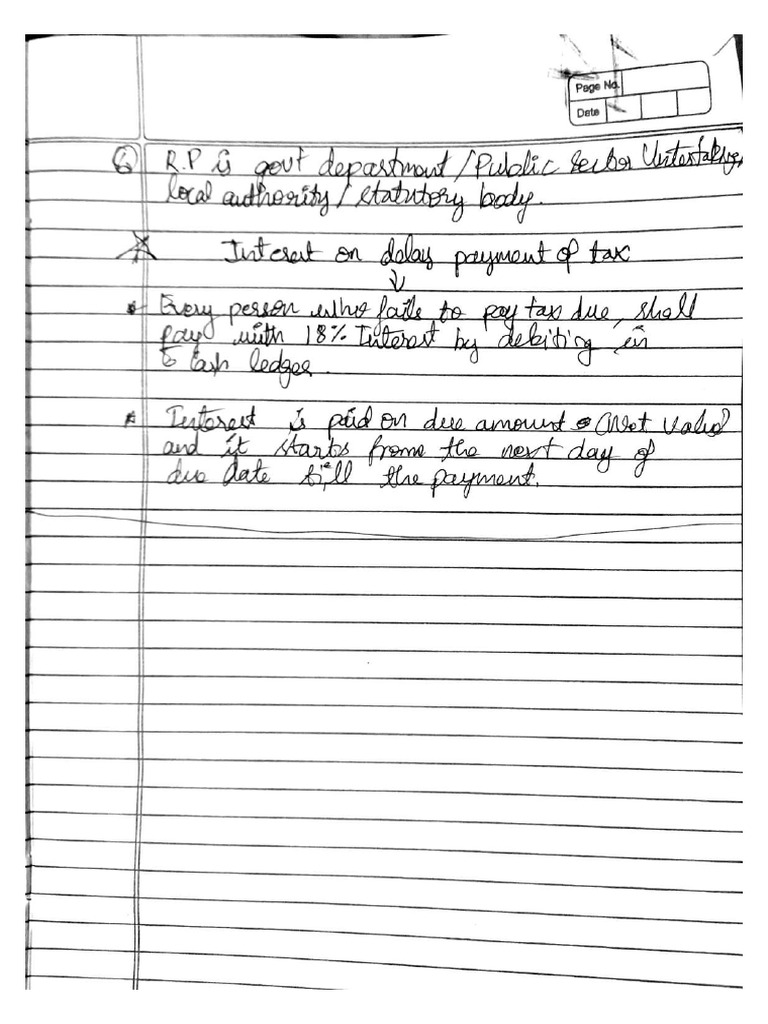 Page No.
Date
⑥ R.P is govt department/Public Sector Untertaking,
local authority/statutory body.
Interest on delay payment of tax
↓
* Every person who fails to pay tax due, shall
pay with 18% Interest by debiting in
E Cash ledger.
* Interest is paid on due amount (Net Value)
and it starts frome the next day of
due date till the payment.